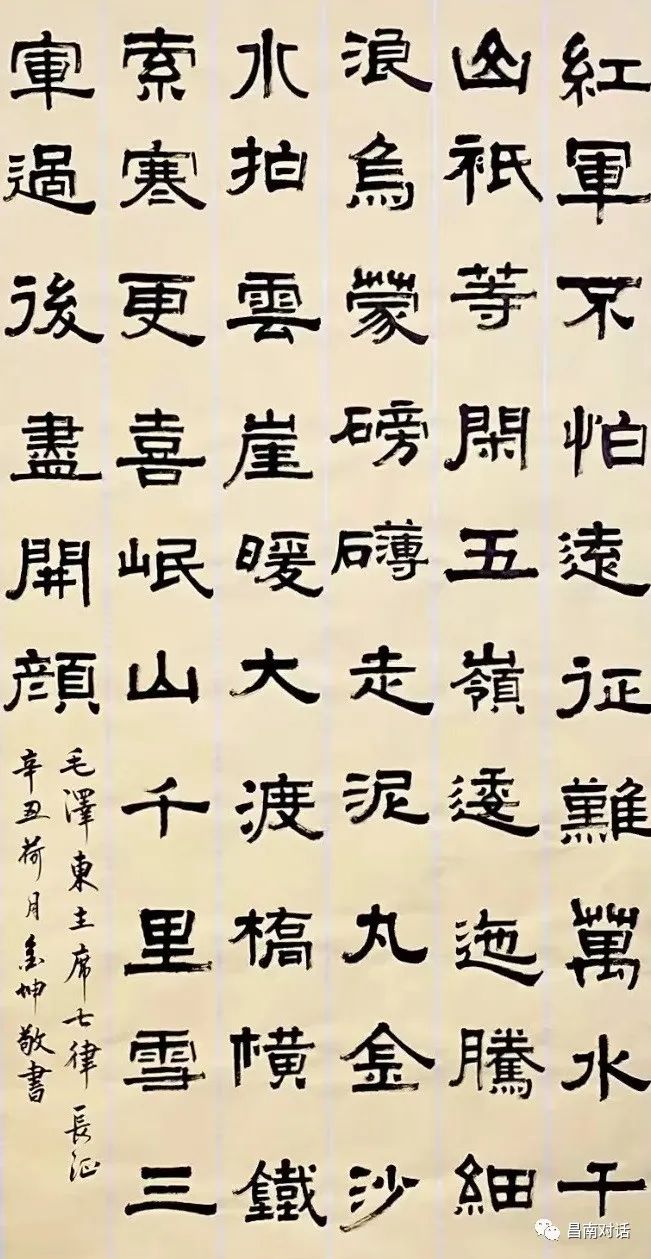 紅軍不怕遠征難萬水千
山祇等閑五嶺逶迤騰細
浪烏蒙磅礴走泥丸金沙
水拍雲崖暖大渡橋橫鐵
索寒更喜岷山千里雪三
軍過後盡開顏
毛澤東主席七律 長征
辛丑荷月金坤敬書
昌南对话